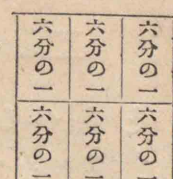 六分の一
六分の一
六分の一
六分の一
六分の一
六分の一